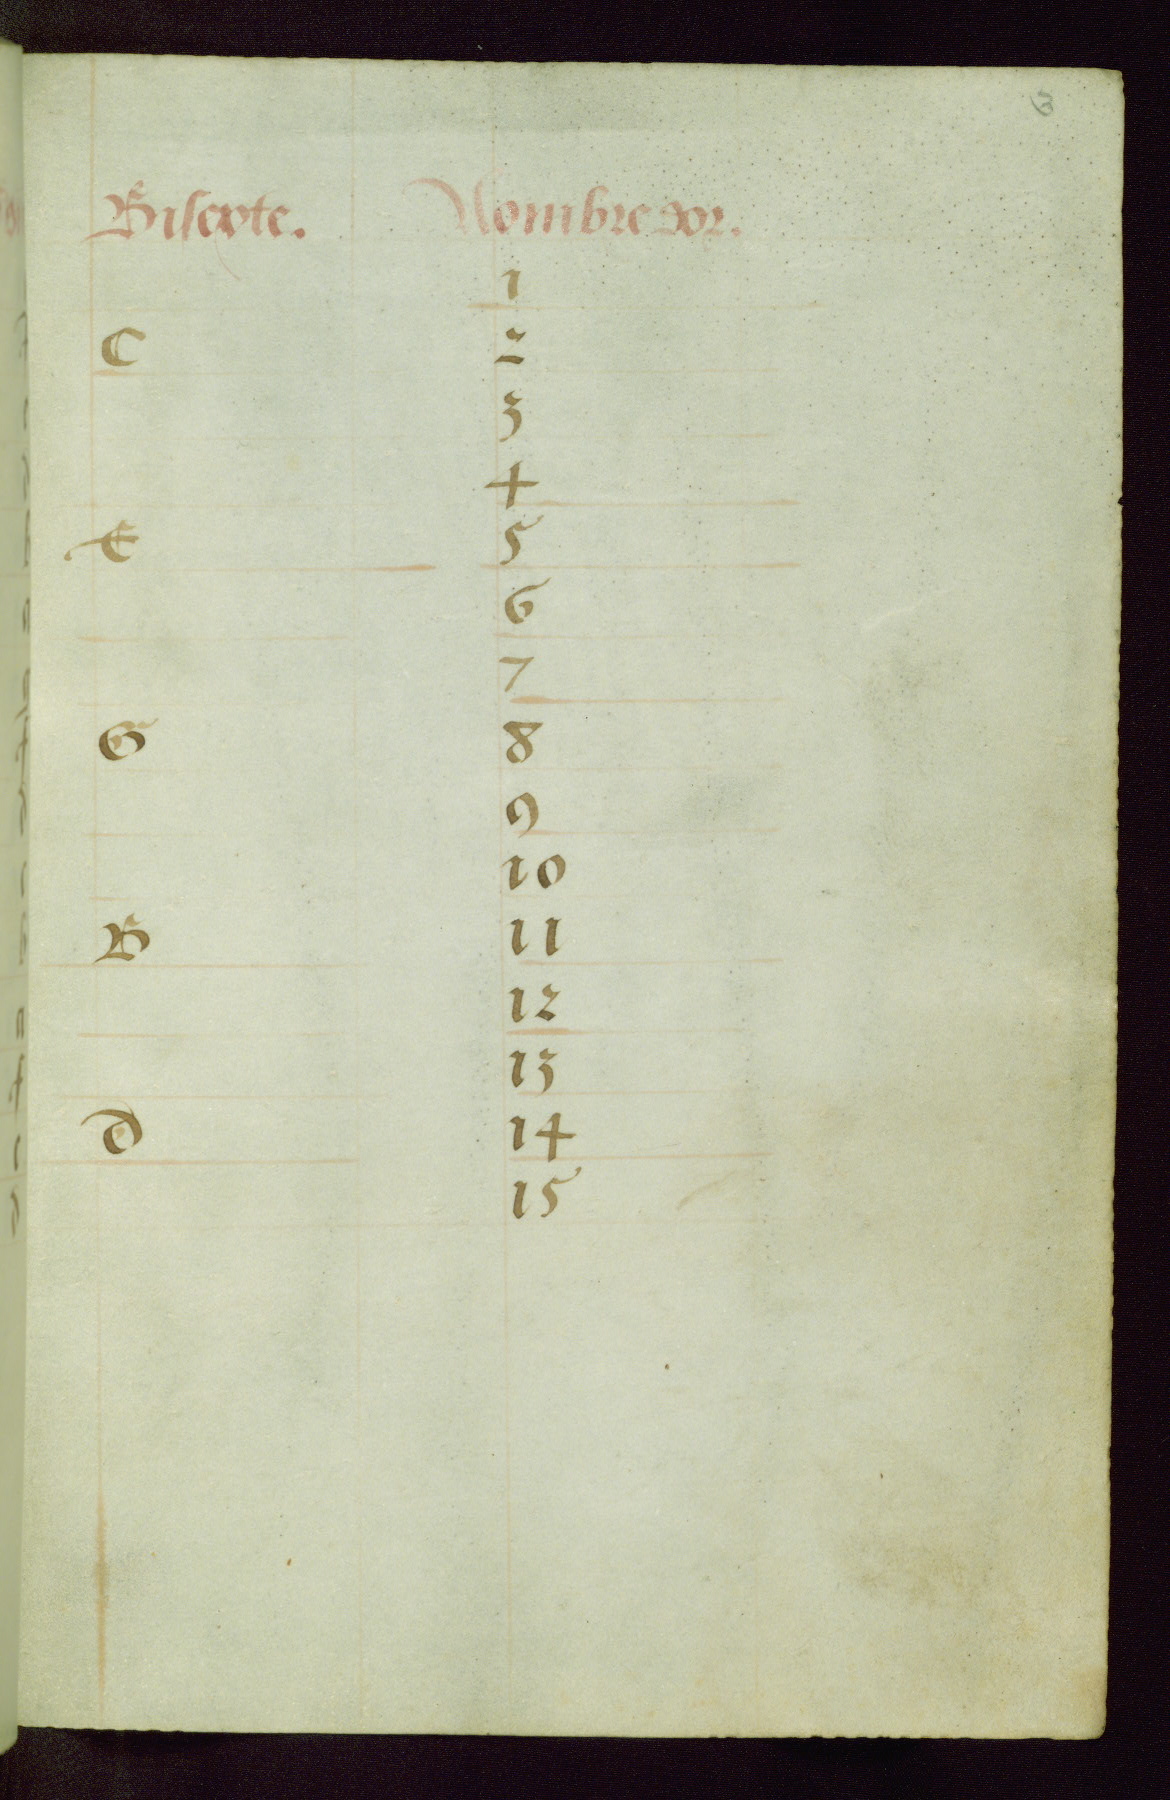 6
Bisexte. Nombre dor.
1
C 2
3
4
E 5
6
7
G 8
9
10
B 11
12
13
D 14
15